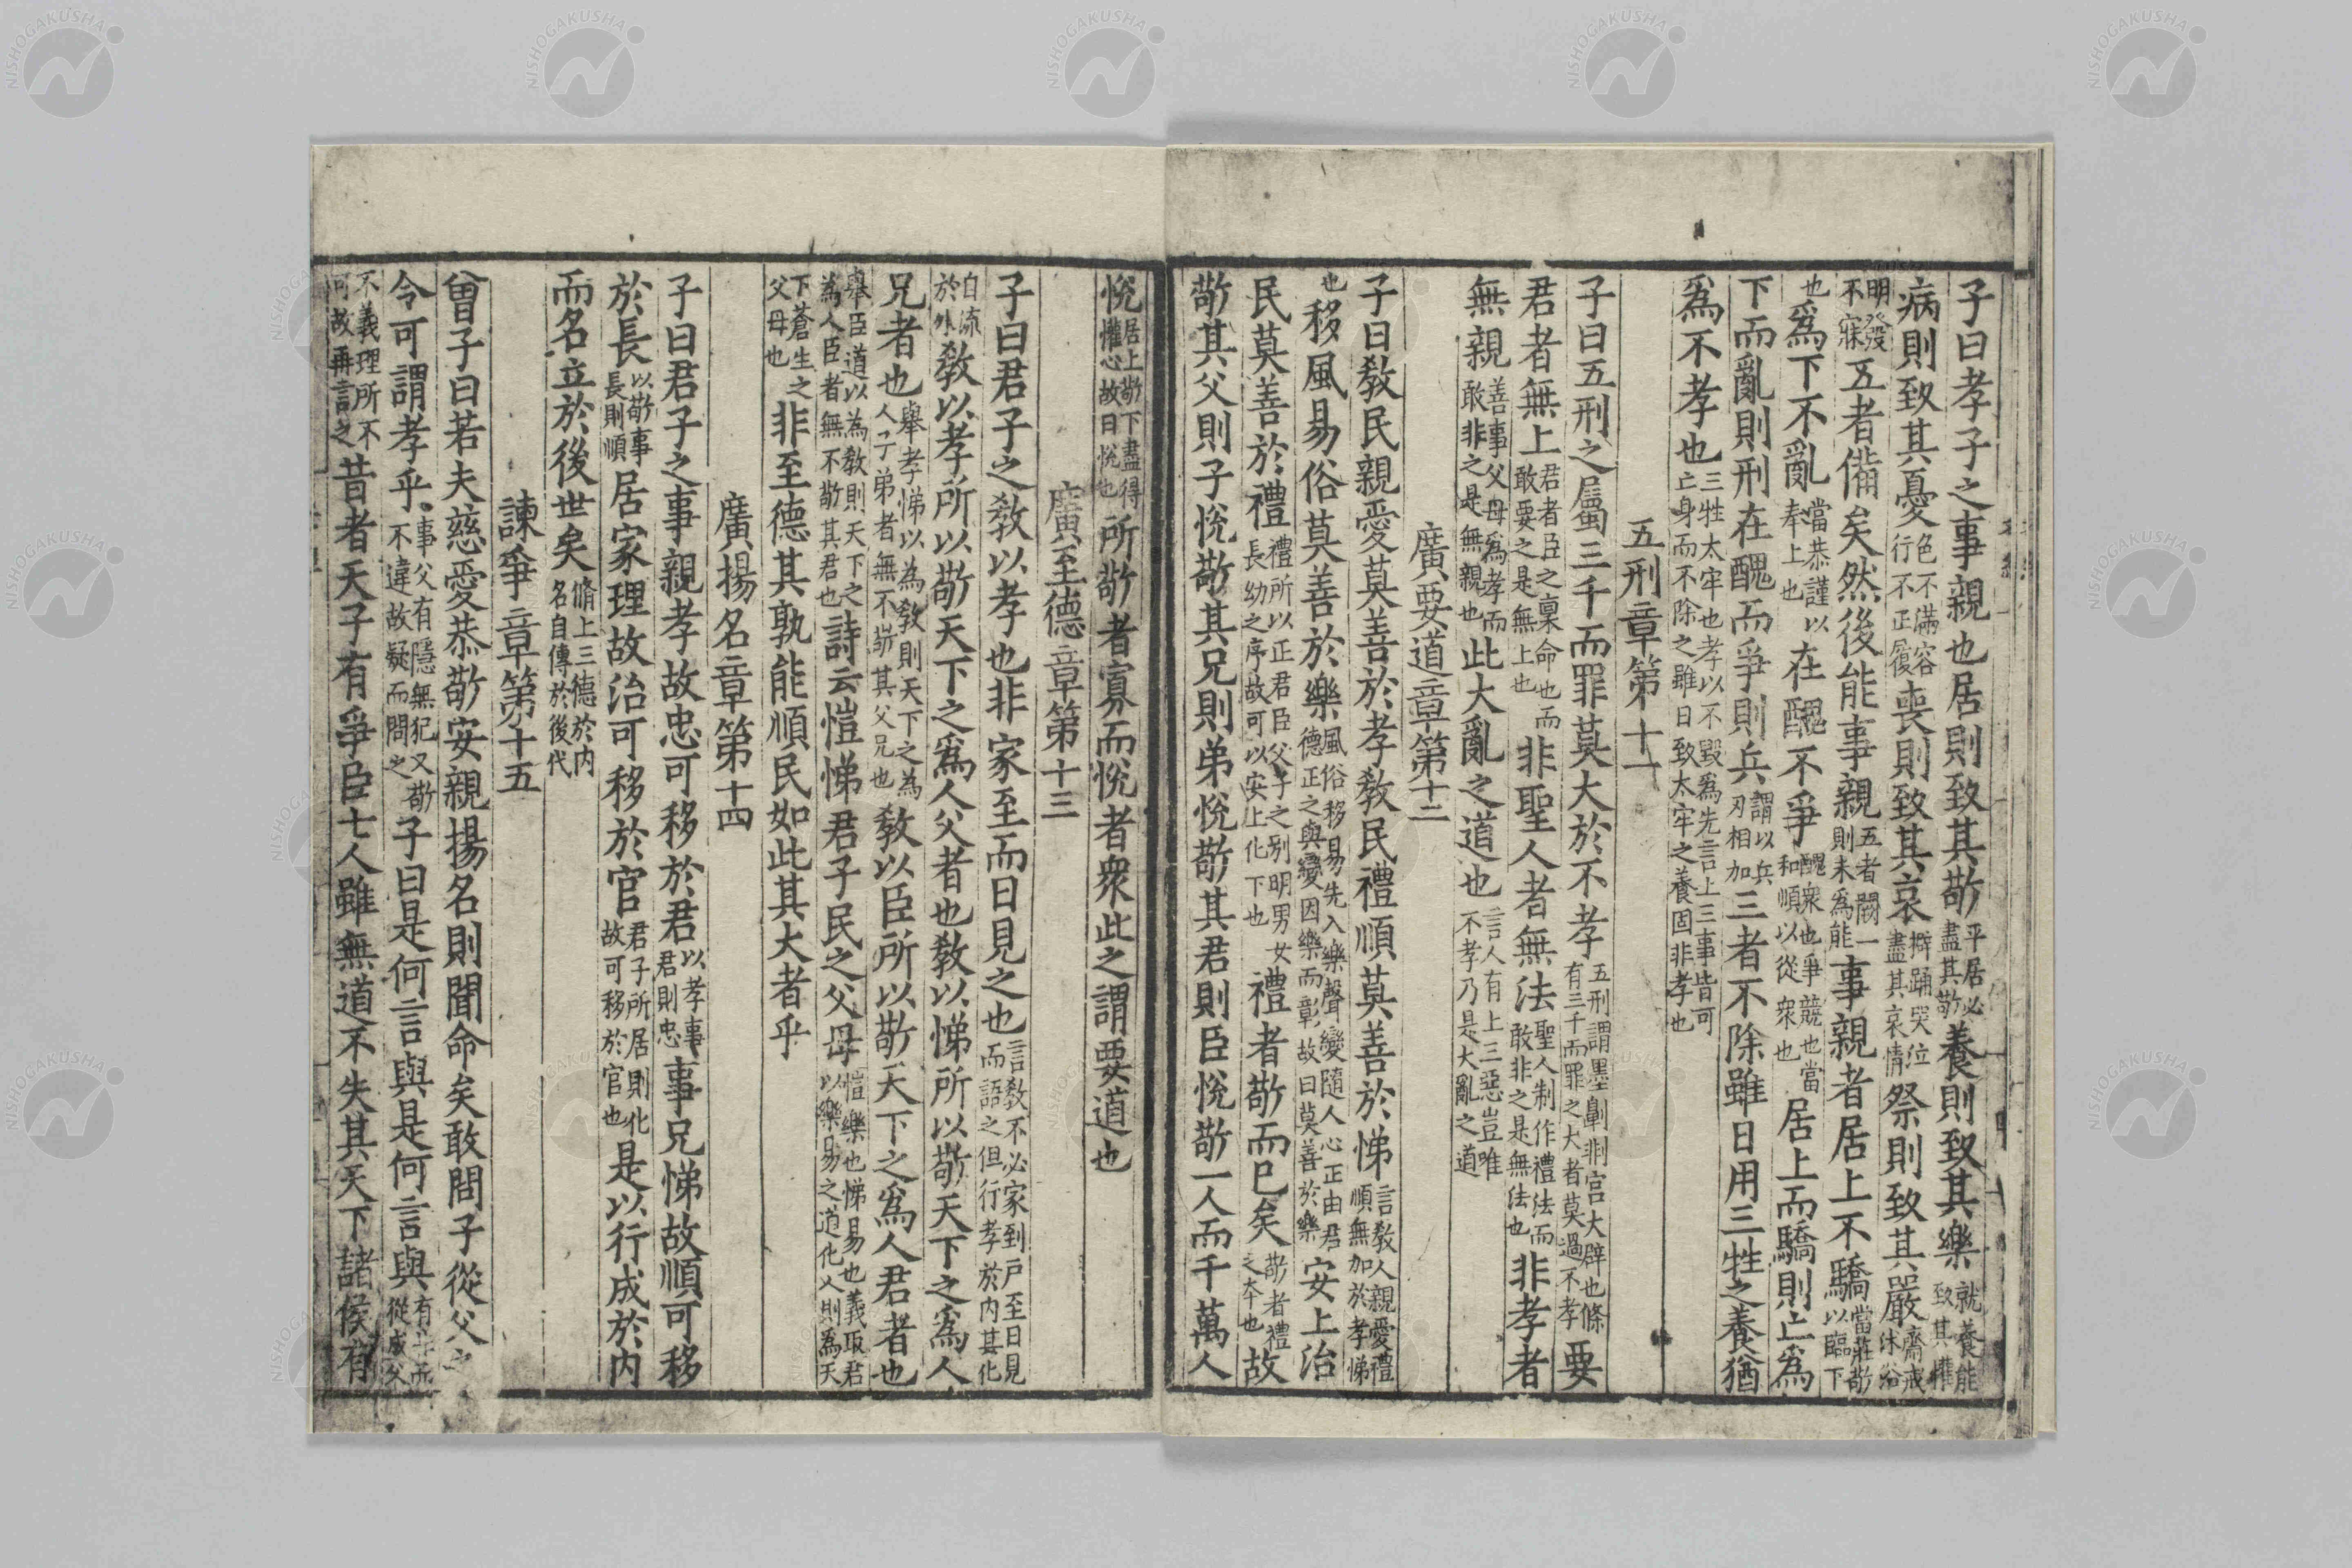 子曰孝子之事親也居則致其敬平居必盡其敬養則致其樂就養能致其懽
病則致其憂色不滿容行不正履喪則致其哀擗踊哭泣盡其哀情祭則致其嚴齋戒沐浴
明發不寐五者備矣然後能事親五者闕一則未爲能事親者居上不驕當莊敬以臨下
也爲下不亂當恭謹以奉上也在醜不爭醜衆也爭競也當和順以從衆也居上而驕則亡爲
下而亂則刑在醜而爭則兵謂以兵刃相加三者不除雖日用三牲之養猶
爲不孝也三牲太牢也孝以不毀爲先言上三事皆可亡身而不除之雖日致太牢之養固非孝也
五刑章第十一
子曰五刑之屬三千而罪莫大於不孝五刑謂墨劓剕宮大辟也條有三千而罪之大者莫過不孝要
君者無上君者臣之稟命也而敢要之是無上也非聖人者無法聖人制作禮法而敢非之是無法也非孝者
無親善事父母爲孝而敢非之是無親也此大亂之道也言人有上三惡豈唯不孝乃是大亂之道
廣要道章第十二
子曰敎民親愛莫善於孝敎民禮順莫善於悌言敎人親愛禮順無加於孝悌
也移風易俗莫善於樂風俗移易先入樂聲變隨人心正由君德正之與變因樂而彰故曰莫善於樂安上治
民莫善於禮禮所以正君臣父子之別明男女長幼之序故可以安上化下也禮者敬而已矣敬者禮之本也故
敬其父則子悅敬其兄則弟悅敬其君則臣悅敬一人而千萬人
悅居上敬下盡得懽心故曰悅也所敬者寡而悅者衆此之謂要道也
廣至德章第十三
子曰君子之敎以孝也非家至而日見之也言敎不必家到戶至日見而語之但行孝於內其化
自流於外敎以孝所以敬天下之爲人父者也敎以悌所以敬天下之爲人
兄者也舉孝悌以為敎則天下之為人子弟者無不敬其父兄也敎以臣所以敬天下之爲人君者也
舉臣道以為敎則天下之為人臣者無不敬其君也詩云愷悌君子民之父母愷樂也悌易也義取君以樂易之道化人則為天
下蒼生之父母也非至德其孰能順民如此其大者乎
廣揚名章第十四
子曰君子之事親孝故忠可移於君以孝事君則忠事兄悌故順可移
於長以敬事長則順居家理故治可移於官君子所居則化故可移於官也是以行成於內
而名立於後世矣脩上三德於內名自傳於後代
諫爭章第十五
曾子曰若夫慈愛恭敬安親揚名則聞命矣敢問子從父之
令可謂孝乎事父有隱無犯又敬不違故疑而問之子曰是何言與是何言與有非而從成父
不義理所不可故再言之昔者天子有爭臣七人雖無道不失其天下諸侯有